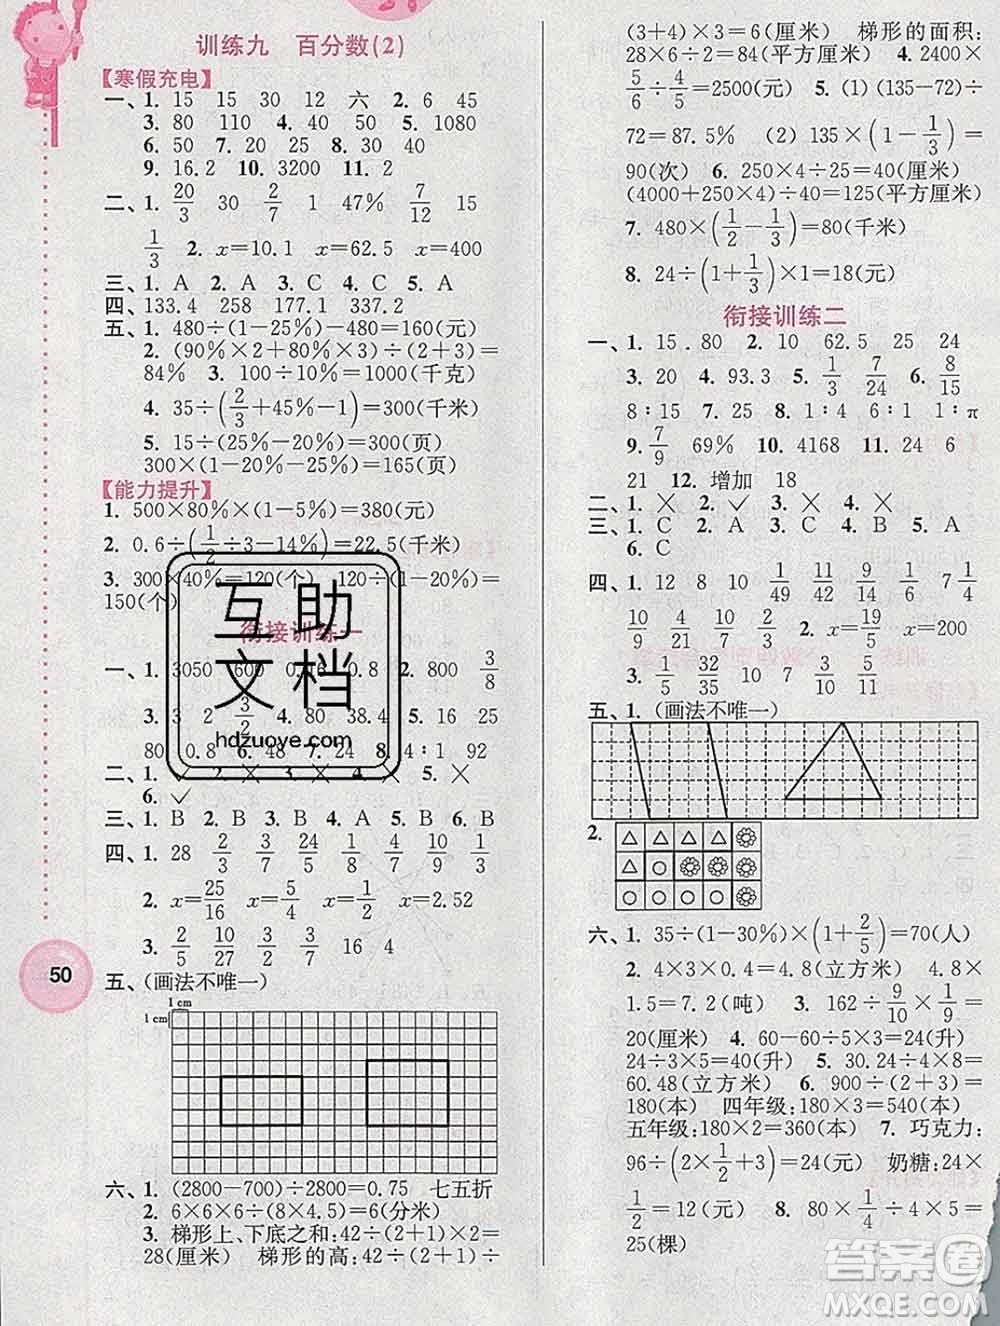 训练九　百分数(2)
【寒假充电】
一、1. 15　15　30　12　六　2. 6　45
3. 80　110　4. 40　15　5. 1080
6. 50　7. 20　25　8. 30　40
9. 16.2　10. 3200　11. 2
二、1. 20/3　30　2/7　1　47%　7/12　15
1/3　2. x=10.1　x=62.5　x=400
三、1. A　2. A　3. C　4. C　5. A
四、133.4　258　177.1　337.2
五、1. 480÷(1-25%)-480=160(元)
2. (90%×2+80%×3)÷(2+3)=
84%　3. 100÷10%=1000(千克)
4. 35÷(2/3+45%-1)=300(千米)
5. 15÷(25%-20%)=300(页)
300×(1-25%-20%)=165(页)
【能力提升】
1. 500×80%×(1-5%)=380(元)
2. 0.6÷(1/2÷3-14%)=22.5(千米)
3. 300×40%=120(个)　120÷(1-20%)=
150(个)
衔接训练一
一、1. 3050　600　0.8　2. 800　3/8
3. 3　2　3/2　4. 80　38.4　5. 16　25
80　0.8　6. 50　7. 24　8. 4∶1　92
二、1.　5. ×
6. ✓
三、1. B　2. B　3. B　4. A　5. B　6. B
四、1. 28　2/3　3/7　24/25　1/8　3/7　2/7
2. x=25/16　x=5/4　x=2.52
3. 2/5　10/27　3/4　16　4
五、(画法不唯一)
1 cm
1 cm
六、1. (2800-700)÷2800=0.75　七五折
2. 6×6×6÷(8×4.5)=6(分米)
3. 梯形上、下底之和:42÷(2+1)×2=
28(厘米)　梯形的高:42÷(2+1)÷
50
(3+4)×3=6(厘米)　梯形的面积:
28×6÷2=84(平方厘米)　4. 2400×
5/6÷4/5=2500(元)　5. (1) (135-72)÷
72=87.5%　(2) 135×(1-1/3)=
90(次)　6. 250×4÷25=40(厘米)
(4000+250×4)÷40=125(平方厘米)
7. 480×(1/2-1/3)=80(千米)
8. 24÷(1+1/3)×1=18(元)
衔接训练二
一、1. 15.80　2. 10　62.5　25　24
3. 20　4. 93.3　5. 1/3　7/24　6. 8/15
8∶15　7. 25　8. 1∶4　6∶1∶π
9. 7/9　69%　10. 4168　11. 24　6
21　12. 增加　18
二、1. ×　2. ✓　3. ×　4. ×
三、1. C　2. A　3. C　4. B　5. A
6. C
四、1. 12　8　3/4　12/49　9/16　1/6　7 1/4
10/9　4/21　7/10　2. x=19/8　x=200
3. 1/5　32/35　10　7/9　7/9
五、1. (画法不唯一)
2.
六、1. 35÷(1-30%)×(1+2/5)=70(人)
2. 4×4×0.3=4.8(立方米)　4.8×
1.5=7.2(吨)　3. 162÷9/10×1/9=
20(厘米)　4. 60-60÷5×3=24(升)
24÷3×5=40(升)　5. 30.24÷4×8=
60.48(立方米)　6. 900÷(2+3)=
180(本)　四年级:180×3=540(本)
五年级:180×2=360(本)　7. 巧克力:
96÷(2×1/2+3)=24(元)　奶糖:24×
1/2=12(元)　8. 80÷4/5×1/4=
25(棵)
互助文档
hdzuoye.com
答案圈
MXQE.COM